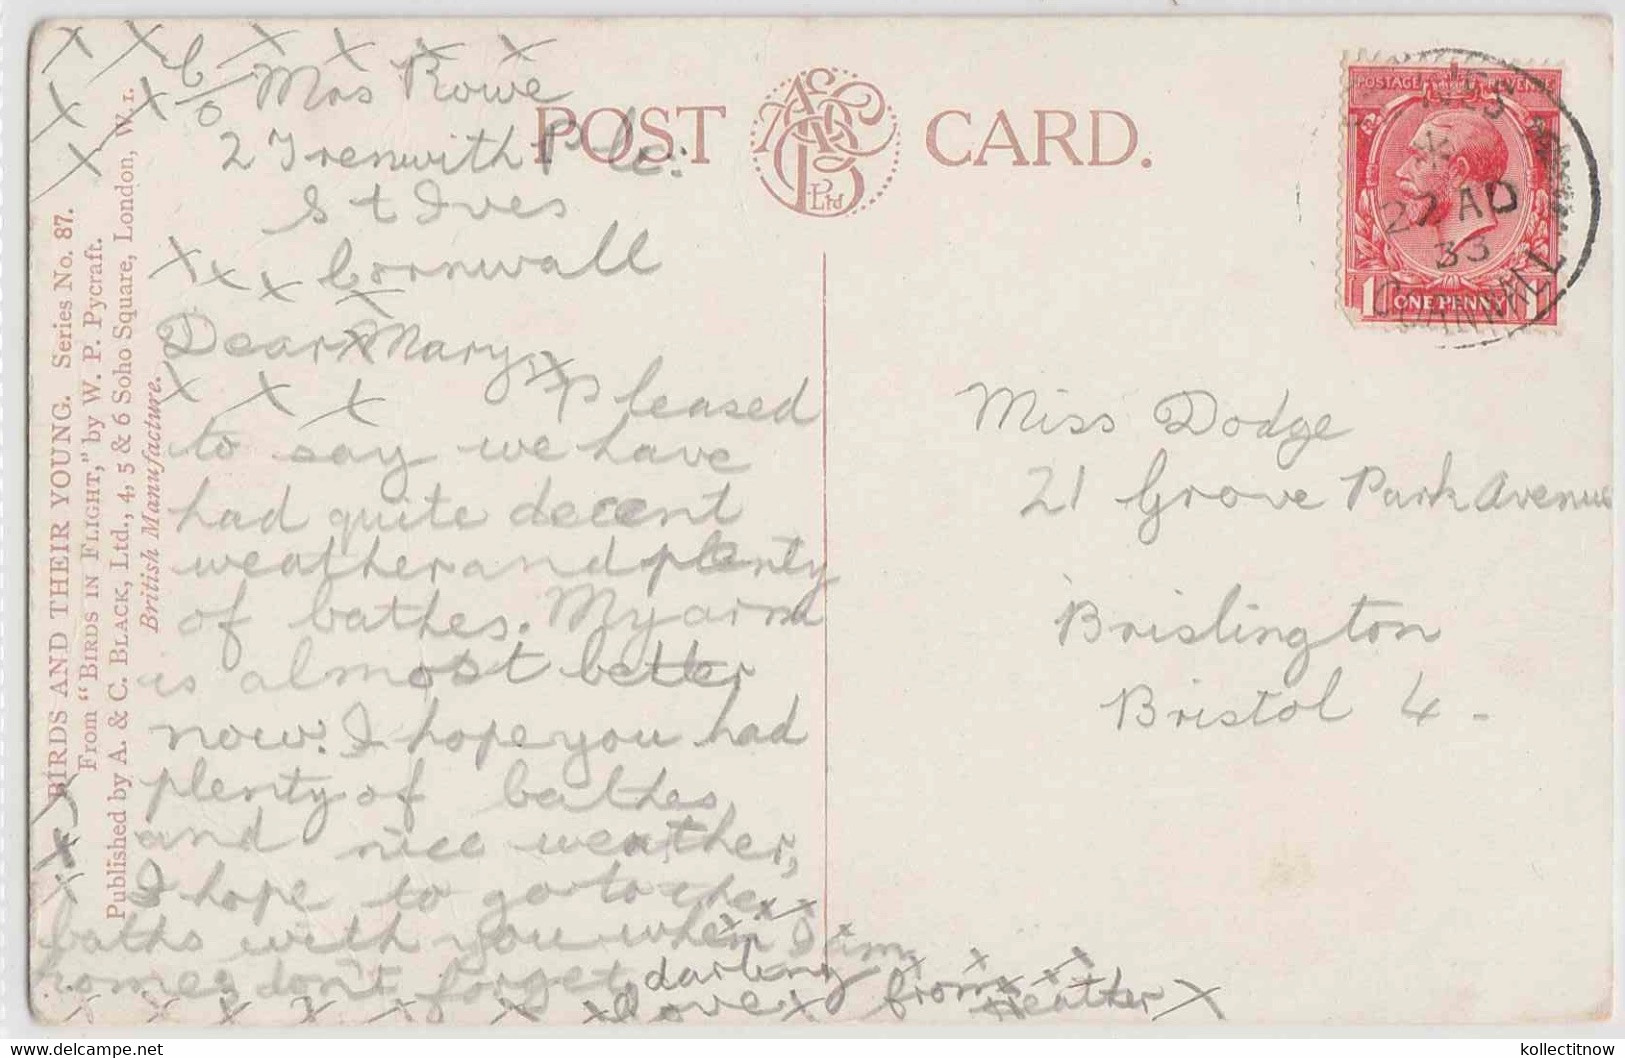 c/o Mrs Rowe
2 Trenwith Plc:
St Ives
Cornwall
Dear Mary,
Pleased
to say we have
had quite decent
weather and plenty
of bathes. My arm
is almost better
now. I hope you had
plenty of bathes
and nice weather,
I hope to go to the
baths with you when I am
home, don't forget, darling
love from Heather
POST CARD.
A&CB Ltd
BIRDS AND THEIR YOUNG. Series No. 87.
From "BIRDS IN FLIGHT," by W. P. Pycraft.
Published by A. & C. BLACK, Ltd., 4, 5 & 6 Soho Square, London, W 1.
British Manufacture.
POSTAGE
1 ONE PENNY 1
27 AU
33
CORNWALL
Miss Dodge
21 Grove Park Avenue
Brislington
Bristol 4 -
kollectitnow